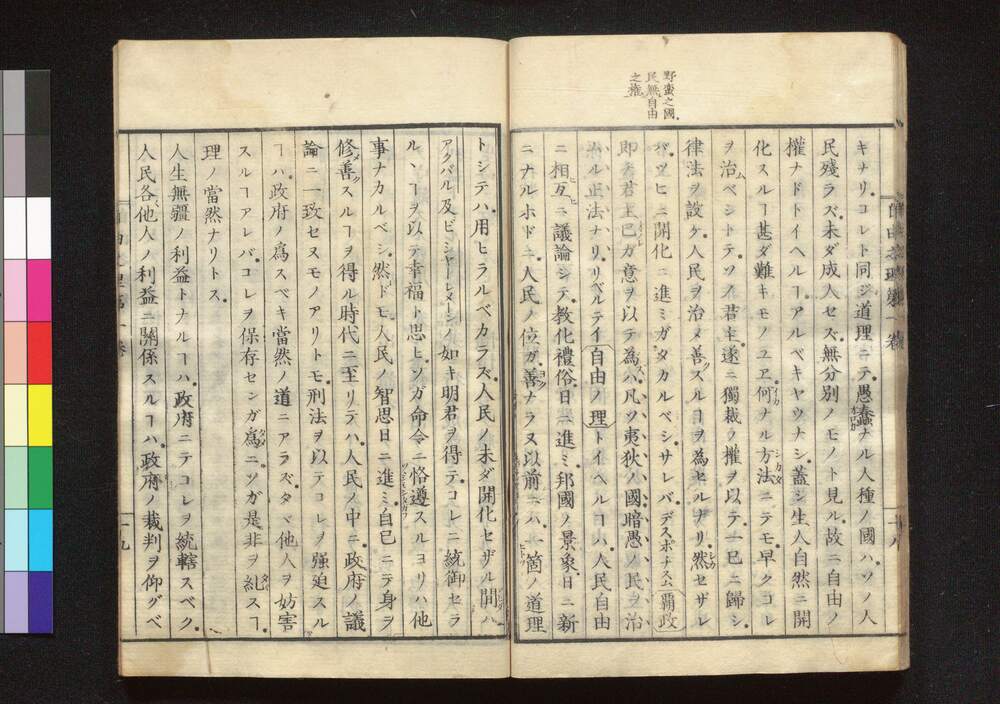 野蠻之國
民無自由
之權
キナリ。コレト同ジ道理ニテ。愚蠢ナル人種ノ國ハ。ソノ人
民殘ラズ。未ダ成人セズ。無分別ノモノト見ル。故ニ自由ノ
權ナドトイヘルヿ。アルベキヤウナシ。蓋シ生人自然ニ開
化スルヿ甚ダ難キモノユヱ。何ナル方法ニテモ。早クコレ
ヲ治ムベシトテ。ソノ君主。遂ニ獨裁ノ權ヲ以テ。一己ニ歸シ。
律法ヲ設ケ。人民ヲ治メ善スルヿヲ為セルナリ。然セザレ
バ。ツヒニ開化ニ進ミガタカルベシ。サレバ。デスポチスム覇政
即チ君主己ガ意ヲ以テ為ハ。凡ソ夷狄ノ國。暗愚ノ民ヲ治
ムル正法ナリ。リベルテイ自由ノ理トイヘルヿハ。人民自由
ニ相互ニ議論シテ。教化禮俗。日ニ進ミ。邦國ノ景象。日ニ新
ニナルホドニ。人民ノ位ガ善ナラヌ以前ニハ。一箇ノ道理
トシテハ。用ヒラルベカラズ。人民ノ未ダ開化セザル間ハ
アクバル及ビシヤーレメーンノ如キ明君ヲ得テ。コレニ統御セラ
ルヽヿヲ以テ幸福ト思ヒ。ソガ命令ニ恪遵スルヨリハ他
事ナカルベシ。然ドモ。人民ノ智思日ニ進ミ。自己ニテ身ヲ
修善スルヿヲ得ル時代ニ至リテハ。人民ノ中ニ。政府ノ議
論ニ一致セヌモノアリトモ。刑法ヲ以テコレヲ強迫スル
ヿハ。政府ノ爲スベキ當然ノ道ニアラズ。タヾ他人ヲ妨害
スルヿアレバ。コレヲ保存センガ爲ニ。ソガ是非ヲ糺スヿ。
理ノ當然ナリトス。
人生無疆ノ利益トナルヿハ。政府ニテコレヲ統轄スベク。
人民各、他人ノ利益ニ關係スルヿハ。政府ノ裁判ヲ仰グベ
十八
十九